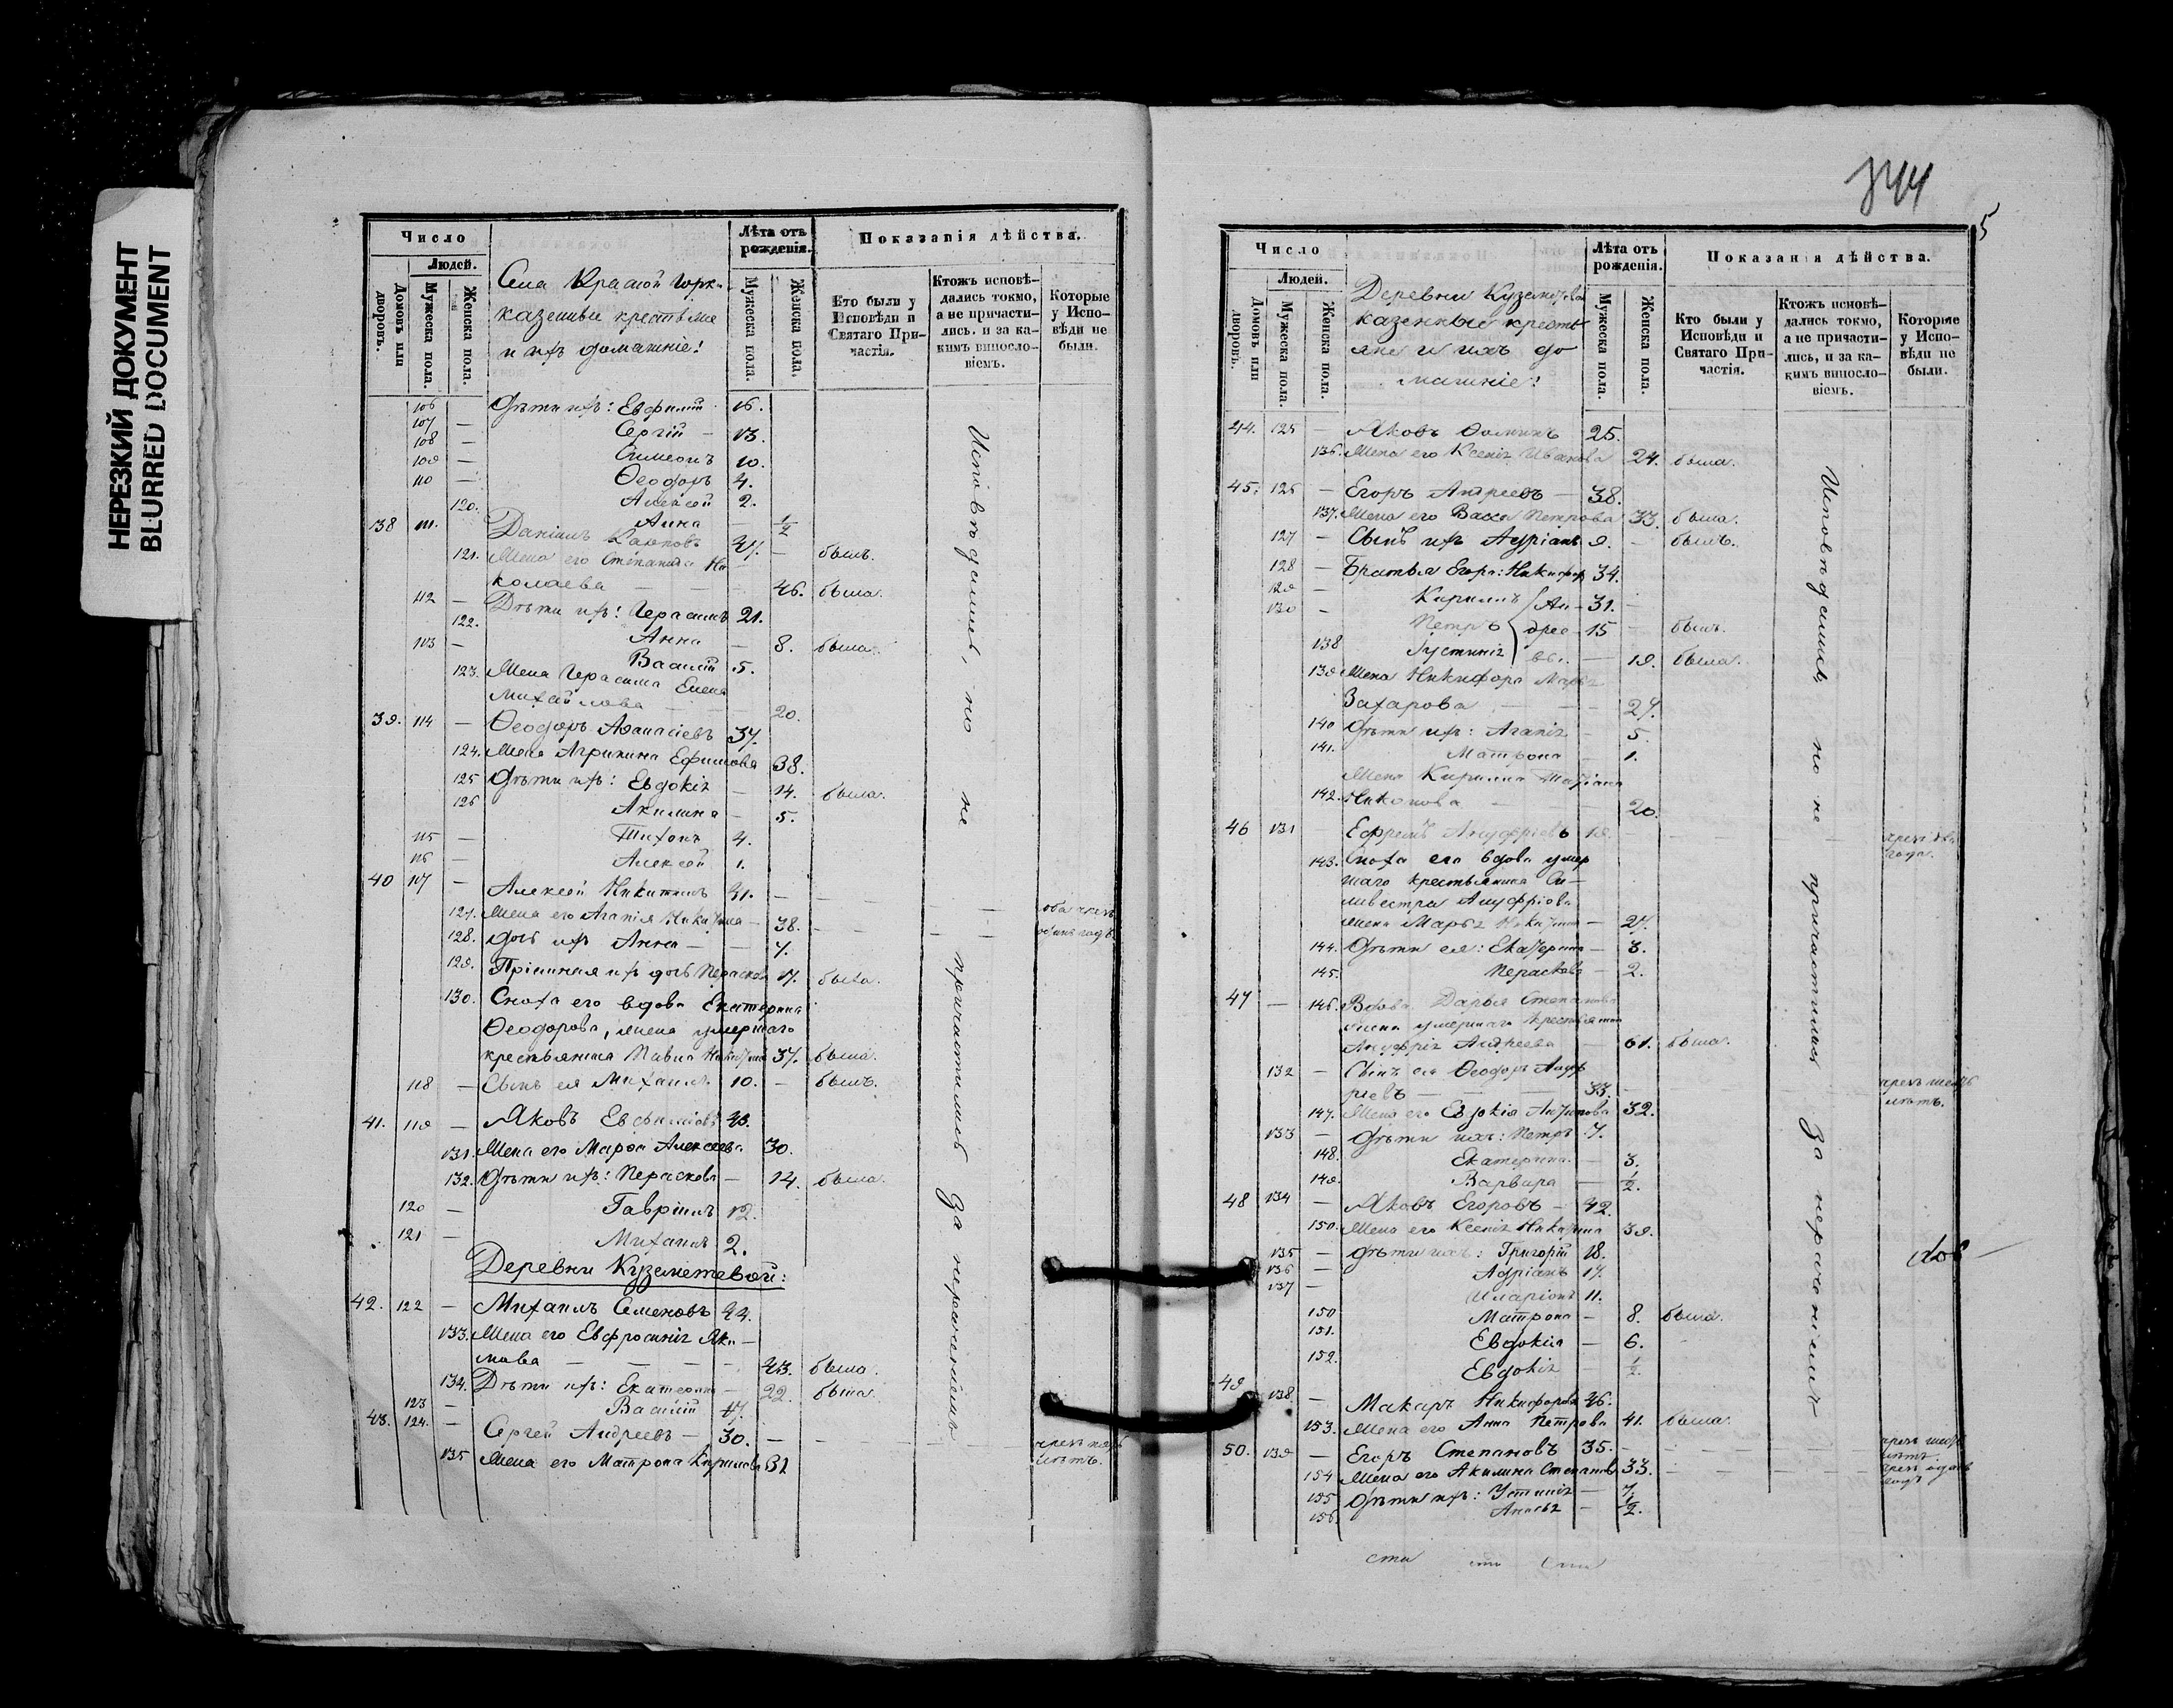 НЕРЕЗКИЙ ДОКУМЕНТ
BLURRED DOCUMENT
Число
Людей.
Домовъ или дворовъ.
Мужеска пола.
Женска пола.
Села Красной Горки
казенные крестьяне
и ихъ домашніе:
Лѣта отъ рожденія.
Мужеска пола.
Женска пола.
Показанія дѣйства.
Кто были у Исповѣди и Святаго Причастія.
Ктожъ исповѣ-
дались токмо,
а не причасти-
лись. и за ка-
кимъ виносло-
віемъ.
Которые
у Испо-
вѣди не
были.
106 Дѣти ихъ: Евфимій 16.
107 — Сергій — 13.
108 — Симеонъ 10.
109 — Ѳеодоръ 4.
110 — Алексѣй 2.
120. Анна — 1/4
38 111. Даніилъ 47. — былъ.
121. Жена его Степанида Ни
колаева — 46. была.
112 — Дѣти ихъ: Герасимъ 21.
122. Анна — 8. была.
113 — Василій 5.
123. Жена Герасима Елена
Михайлова — 20.
39. 114 — Ѳеодоръ Аѳанасіевъ 37.
124. Жена Агрипина Ефимова 38.
125 Дѣти ихъ: Евдокія — 14. была.
126 Акилина — 5.
115 — Тихонъ 4.
116 — Алексѣй 1.
40 117 — Алексѣй Никитинъ 41. —
127. Жена его Агапія Никитина — 38. —
оба чрезъ
одинъ годъ.
128. Дочь ихъ Анна — 7.
129. Пріемная ихъ дочь Параскева 17. была.
130. Сноха его вдова Екатерина
Ѳеодорова, жена умершаго
крестьянина Павла Никитина 37. была.
118 — Сынъ ея Михаилъ 10. — былъ.
41. 119 — Яковъ Евфиміовъ 43.
131. Жена его Марѳа Алексеева 30.
132. Дѣти ихъ: Параскева — 14. была.
120 — Гавріилъ 12.
121 — Михаилъ 2.
Деревни Кузементевой:
42. 122 — Михаилъ Семеновъ 44.
133. Жена его Евфросинія Яки—
мова — 43. была.
134. Дѣти ихъ: Екатерина — 22. была.
123 — Василій 17.
43. 124. — Сергей Андреевъ — 30. —
чрезъ пять
лѣтъ.
135 Жена его Матрона Кирилова 31
Исповѣдались, но не причастились за нераченіемъ
344
5
Число
Людей.
Домовъ или дворовъ.
Мужеска пола.
Женска пола
Деревни
казенные кресть
яне и ихъ до
машніе:
Лѣта отъ рожденія.
Мужеска пола.
Женска пола
Показанія дѣйства.
Кто были у Исповѣди и Святаго Причастія.
Ктожъ исповѣ-
дались токмо,
а не причасти-
лись, и за ка-
кимъ виносло-
віемъ.
Которые
у Испо-
вѣди не
были.
44. 125 — Яковъ Ѳоминъ 25.
136. Жена его Ксенія Иванова 24. была.
45. 126 — Егоръ Андреевъ — 38.
137. Жена его Васса Петрова 33. была.
127 — Сынъ ихъ Адріанъ 9. — былъ.
128 — Братья Егора: Никифоръ 34.
129 — Кириллъ 31. —
130 — Петръ 15 — былъ.
Андреевы
138 Іустинія — 19. была.
139 Жена Никифора Марья
Захарова — 27.
140 Дѣти ихъ: Агапія — 5.
141. Матрона — 1.
Жена Кирилла
142. Никонова — 20.
46 131 Ефремъ Ануфріевъ 19. —
чрезъ два
года.
143. Сноха его вдова умер
шаго крестьянина Си—
ливестра Ануфріова
жена Марья Никитина — 27.
144. Дѣти ея: Екатерина — 3.
145. Параскева — 2.
47 — 146. Вдова Дарья Степанова
жена умершаго крестьянина
Ануфрія Андреева — 61. была.
132 — Сынъ ея Ѳеодоръ Ануф
ріевъ — 33. —
чрезъ шесть
лѣтъ.
147. Жена его Евдокія 32.
133 — Дѣти ихъ: Петръ 7.
148. Екатерина — 3.
149. Варвара — 1/2.
48 134 — Яковъ Егоровъ — 42.
150. Жена его Ксенія Никитина 39.
135 — Дѣти ихъ: Григорій 18.
136 — Адріанъ 17.
137 — Иларіонъ 11.
150 Матрона — 8. была.
151. Евдокія — 6.
152. Евдокія 1/2.
49 138. — Макаръ Никифоровъ 46.
153. Жена его Анна Петрова 41. была.
50. 139 — Егоръ Степановъ 35. —
чрезъ шесть
лѣтъ.
154 Жена его Акилина Степанова 33. —
чрезъ одинъ
годъ
155 Дѣти ихъ: Устинія — 7.
156. — 1/2.
Исповѣдались, но не причастились за нераченіемъ